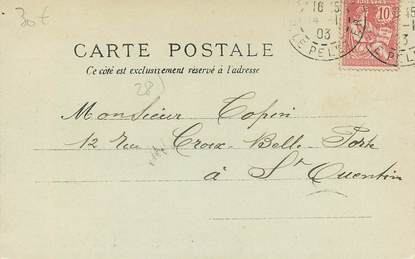 30 €
16
4 -1
03
LE PEL
10
15
CARTE POSTALE
Ce côté est exclusivement réservé à l'adresse
(28)
Monsieur
12 Rue Croix-Belle-Porte
à St Quentin